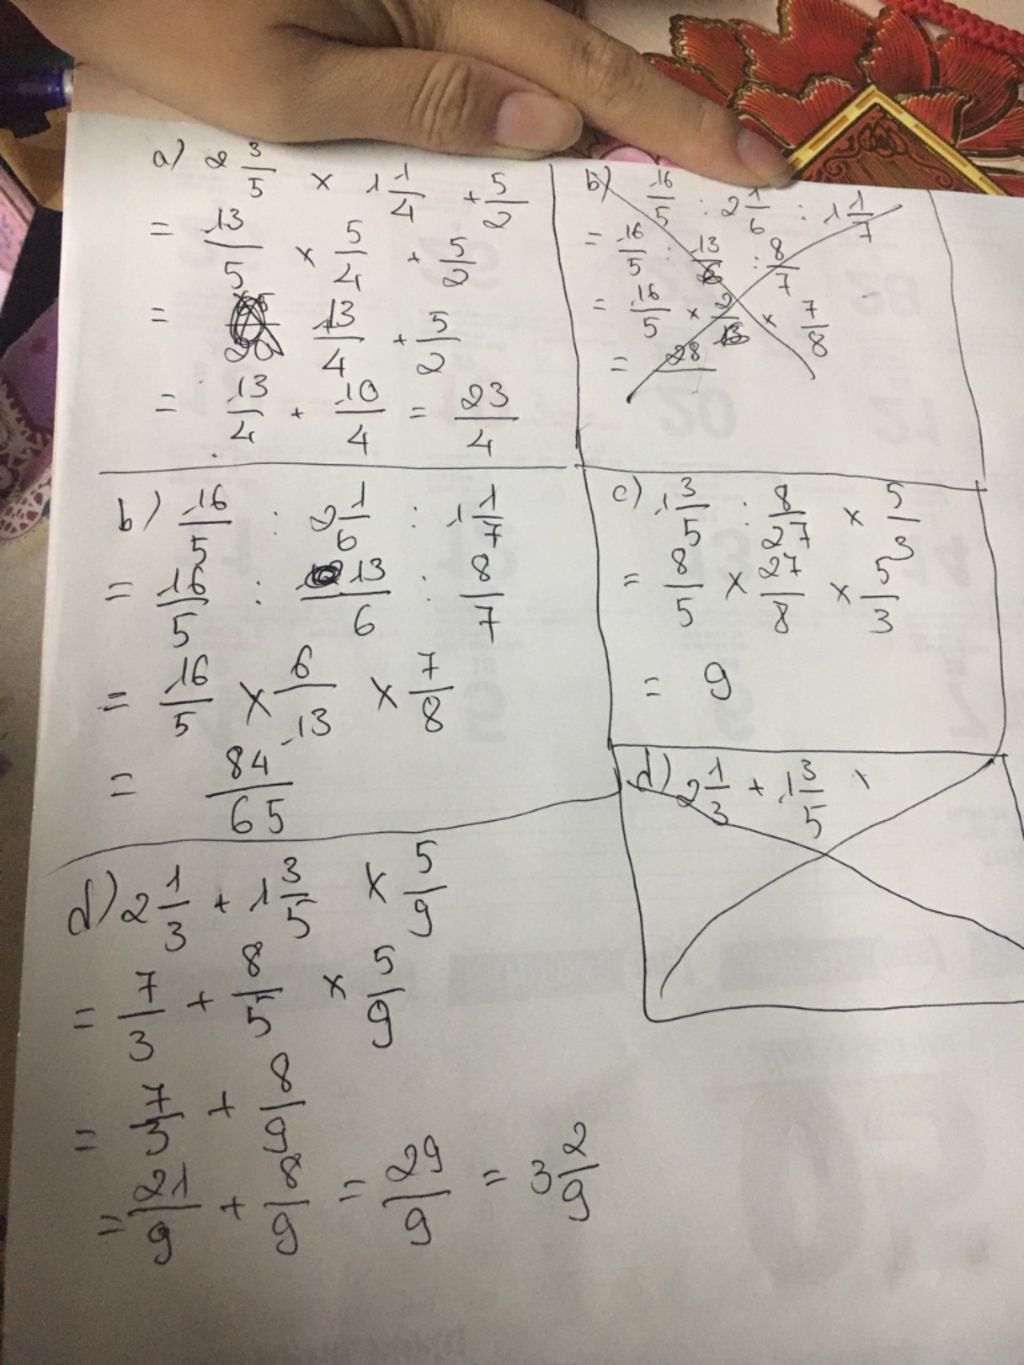 a) 2 3/5 × 1 1/4 + 5/2
= 13/5 × 5/4 + 5/2
= 13/4 + 5/2
= 13/4 + 10/4 = 23/4
b) 16/5 : 2 1/6 : 1 1/7
= 16/5 : 13/6 : 8/7
= 16/5 × 2/13 × 7/8
= 28
b) 16/5 : 2 1/6 : 1 1/7
= 16/5 : 13/6 : 8/7
= 16/5 × 6/13 × 7/8
= 84/65
c) 1 3/5 : 8/27 × 5/3
= 8/5 × 27/8 × 5/3
= 9
d) 2 1/3 + 1 3/5 ×
d) 2 1/3 + 1 3/5 × 5/9
= 7/3 + 8/5 × 5/9
= 7/3 + 8/9
= 21/9 + 8/9 = 29/9 = 3 2/9